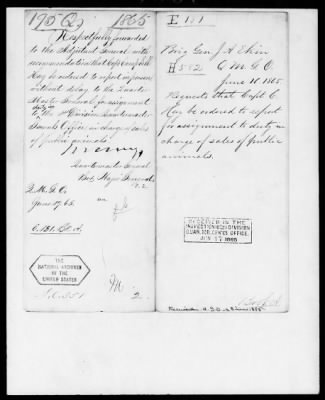 195 Q 1865
Respectfully forwarded
to the Adjutant General with
recommendation that Capt Campbell
May be ordered to report in person
without delay to the Quarter
Master General, for assignment
duty in
to the 1st Division Quartermaster
General's Office in charge of sales
of public animals.
Quartermaster General
Bvt. Major General
Q.M.G.O.
June 17 65.
THE
NATIONAL ARCHIVES
OF THE
UNITED STATES
M
2.
E 151
Brig Gen J A Ekin
H 552 Q M G O
June 16 1865.
Requests that Capt C.
May be ordered to report
for assignment to duty in
charge of sales of public
animals.
RECEIVED IN THE
INSPECTION (6TH) DIVISION
QUAR. GENERAL'S OFFICE,
JUN 17 1865